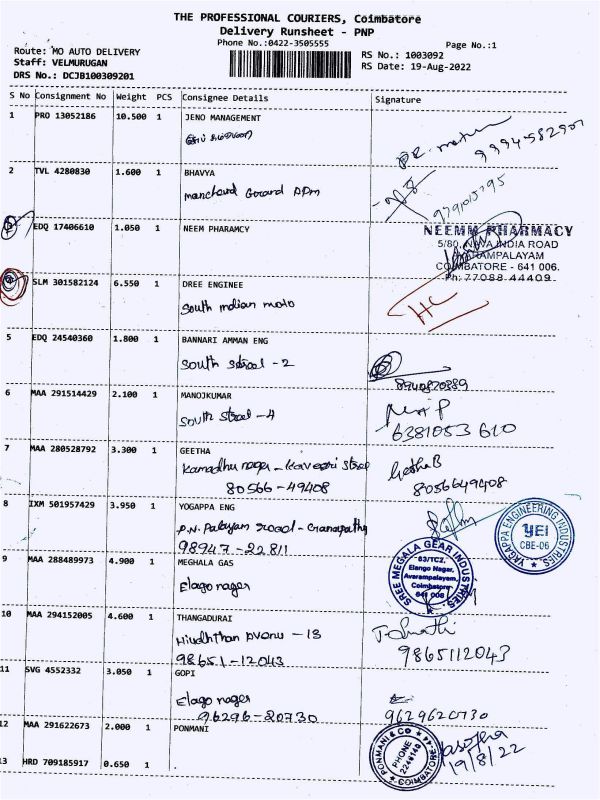 THE PROFESSIONAL COURIERS, Coimbatore
Delivery Runsheet - PNP
Phone No.:0422-3505555
Page No.:1
Route: MO AUTO DELIVERY
Staff: VELMURUGAN
DRS No.: DCJB100309201
RS No.: 1003092
RS Date: 19-Aug-2022
S No Consignment No Weight PCS Consignee Details Signature
1 PRO 13052186 10.500 1 JENO MANAGEMENT
2 TVL 4280830 1.600 1 BHAVYA
EDQ 17406610 1.050 1 NEEM PHARAMCY
NEEMM PHARMACY
5/80, NAVA INDIA ROAD
AVARAMPALAYAM
COIMBATORE - 641 006.
Ph: 77088 44409
SLM 301582124 6.550 1 DREE ENGINEE
South indian moto
HC
5 EDQ 24540360 1.800 1 BANNARI AMMAN ENG
South street - 2
8940820889
6 MAA 291514429 2.100 1 MANOJKUMAR
South street - 4
6381053 610
7 MAA 280528792 3.300 1 GEETHA
Kamadhu nager - Kaveri street
80566 - 49408
Geetha B
8056649408
8 IXM 501957429 3.950 1 YOGAPPA ENG
P.N. Palayam road - Ganapathy
98947 - 22811
YAGAPPA ENGINEERING INDUSTRIES
YEI
CBE-06
9 MAA 288489973 4.900 1 MEGHALA GAS
Elago nager
SREE MEGALA GEAR INDUSTRIES
63/TC2,
Elango Nagar,
Avarampalayam,
Coimbatore-
641 006
10 MAA 294152005 4.600 1 THANGADURAI
98651 - 12043
9865112043
11 SVG 4552332 3.050 1 GOPI
Elago nager
96296 - 20730
9629620730
12 MAA 291622673 2.000 1 PONMANI
PONMANI & CO
PHONE
2249140
COIMBATORE-44
19/8/22
13 HRD 709185917 0.650 1 .